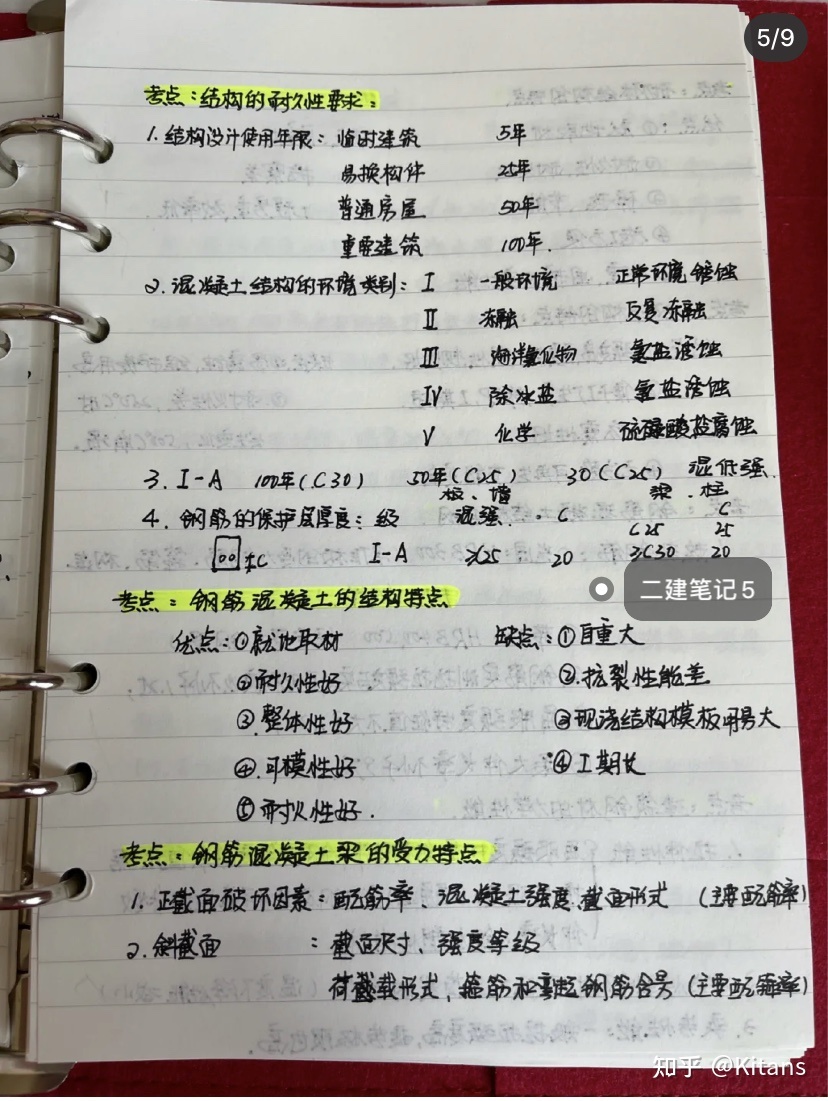 5/9
考点：结构的耐久性要求：
1. 结构设计使用年限：临时建筑 5年
易换构件 25年
普通房屋 50年
重要建筑 100年.
2. 混凝土结构的环境类别： I 一般环境 正常环境 锈蚀
II 冻融 反复冻融
III 海洋氯化物 氯盐锈蚀
IV 除冰盐 氯盐锈蚀
V 化学 硫酸盐腐蚀
3. I-A 100年(C30) 50年(C25) 30(C25) 混低强.
板、墙 梁.柱
4. 钢筋的保护层厚度：级 混强. C C
C25 25
C I-A ≥25 20 ≥C30 20
二建笔记5
考点：钢筋混凝土的结构特点
优点：①就地取材 缺点：①自重大
②耐久性好 ②.抗裂性能差
③.整体性好 ③现浇结构模板用易大
④.可模性好 ④工期长
⑤耐火性好.
考点：钢筋混凝土梁的受力特点
1. 正截面破坏因素：配筋率、混凝土强度、截面形式 (主要配筋率)
2. 斜截面 ：截面尺寸、强度等级
荷载形式，箍筋和弯起钢筋含易 (主要配箍率)
知乎 @Kitans